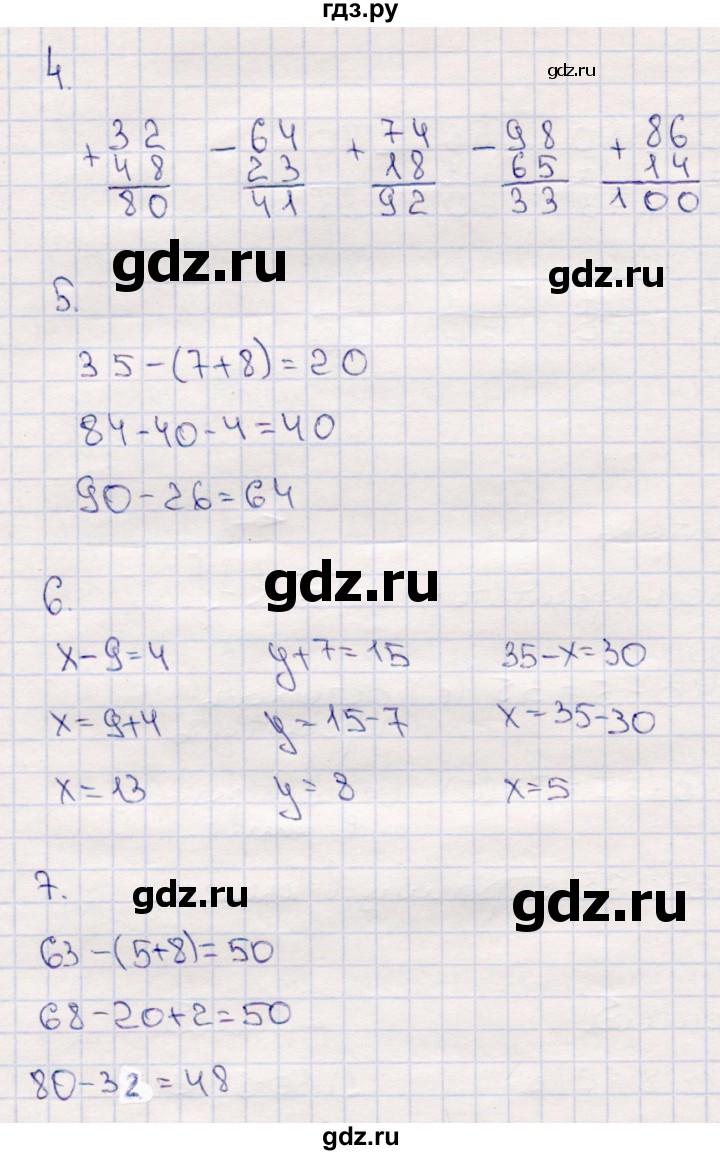 гдз.ру
4.
gdz.ru
+32 -64 +74 -98 +86
48 23 18 65 14
80 41 92 33 100
gdz.ru
gdz.ru
5.
35-(7+8)=20
84-40-4=40
90-26=64
gdz.ru
6.
x-9=4 y+7=15 35-x=30
x=9+4 y=15-7 x=35-30
x=13 y=8 x=5
7.
gdz.ru
gdz.ru
63-(5+8)=50
68-20+2=50
80-32=48
gdz.ru